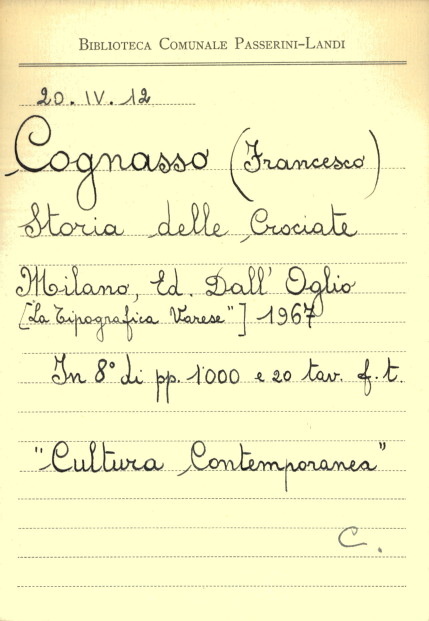 BIBLIOTECA COMUNALE PASSERINI-LANDI
20. IV. 12
Cognasso (Francesco)
Storia delle Crociate
Milano, Ed. Dall' Oglio
["La Tipografica Varese"] 1967
In 8° di pp. 1000 e 20 tav. f. t.
"Cultura Contemporanea"
C.